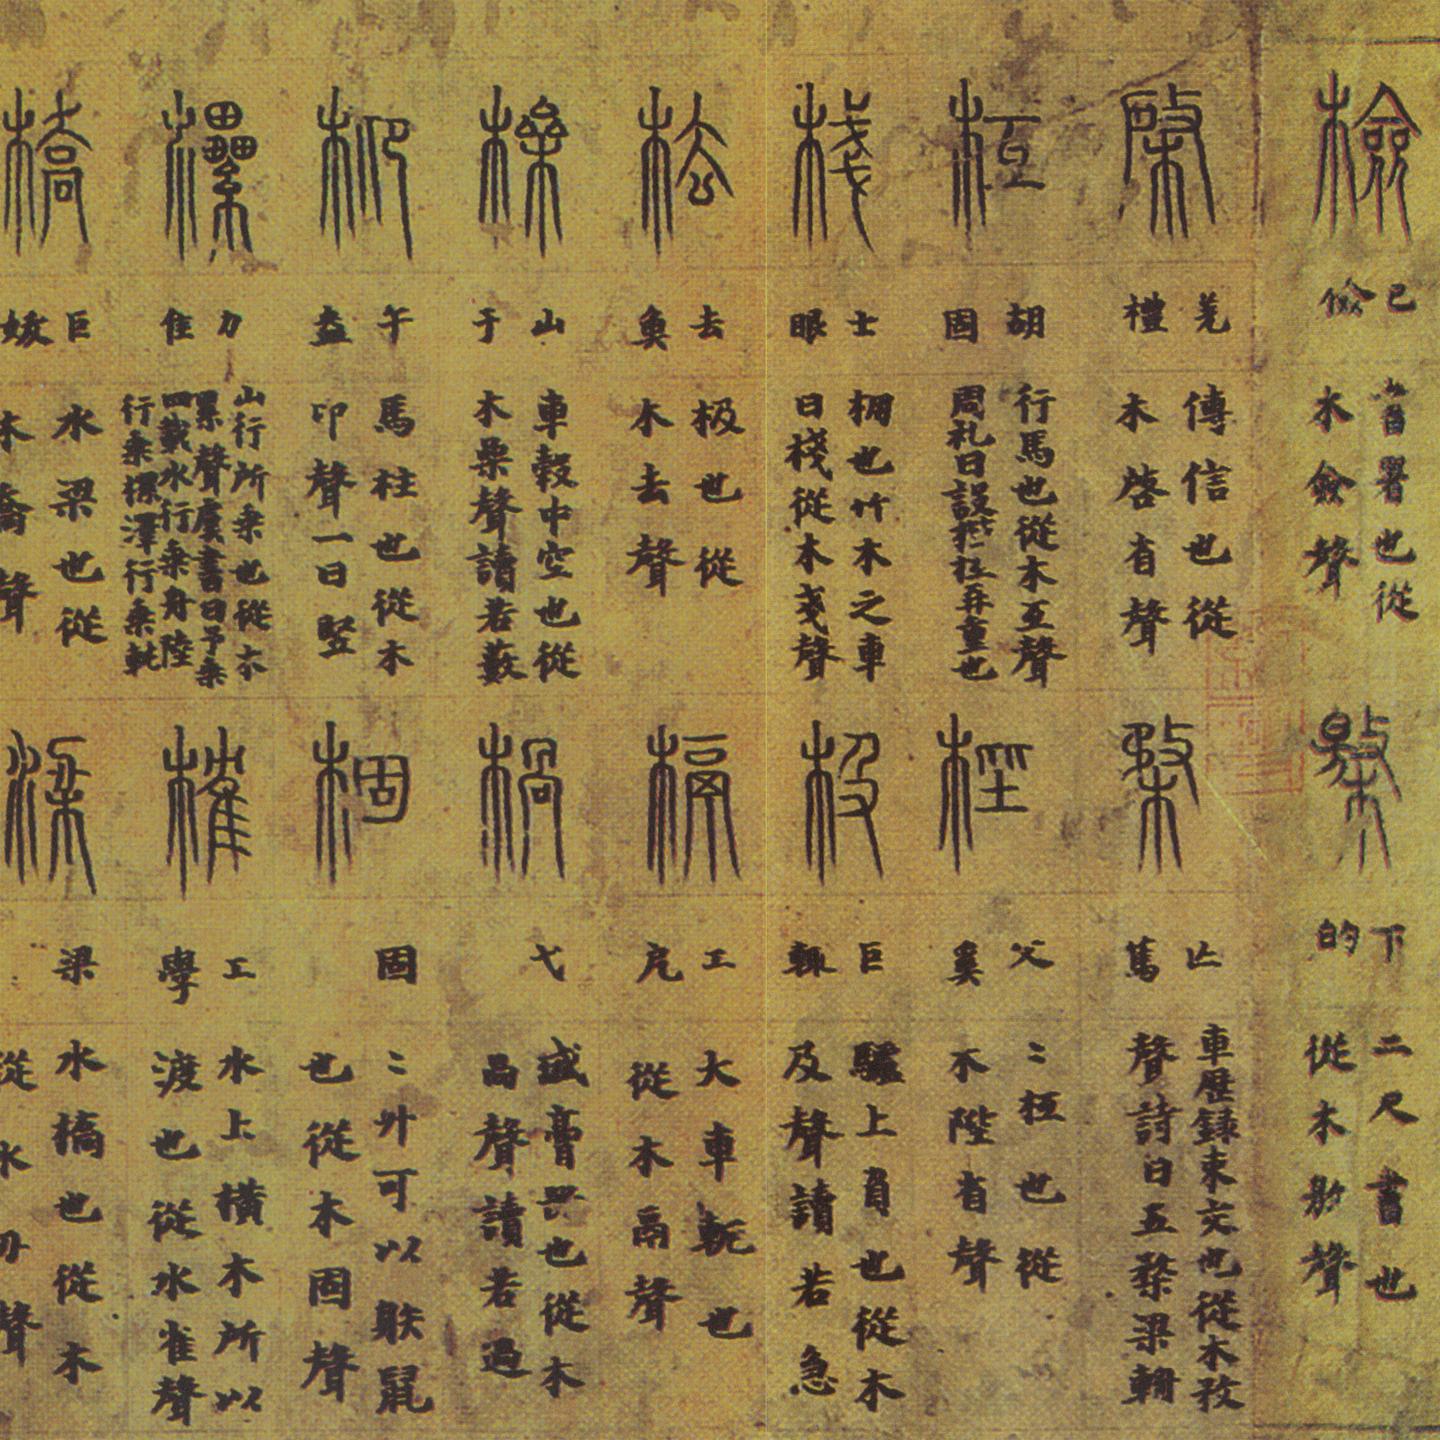 檢
巳儉
書署也從
木僉聲
檄
下的
二尺書也
從木敫聲
棨
羌禮
傳信也從
木啓省聲
楘
亡篤
車歷録束文也從木敄
聲詩曰五楘梁輈
枑
胡固
行馬也從木互聲
周礼曰設梐枑再重也
梐
父奚
〻枑也從
木陛省聲
棧
士眼
棚也竹木之車
曰棧從木戔聲
极
巨輒
驢上負也從木
及聲讀若急
㭕
去魚
极也從
木去聲
槅
工戹
大車軛也
從木鬲聲
橾
山于
車轂中空也從
木喿聲讀若藪
楇
弋
盛膏器也從木
咼聲讀若過
枊
午盎
馬柱也從木
卬聲一曰堅
棝
固
〻斗可以射鼠
也從木固聲
欙
力隹
山行所乘也從木
纍聲虞書曰予乘
四載水行乘舟陸
行乘欙澤行乘
榷
工學
水上橫木所以
渡也從木隺聲
橋
巨
水梁也從
木喬聲
梁
梁
水橋也從木
從水刅聲